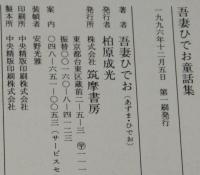 吾妻ひでお童話集
一九九六年十二月五日 第一刷発行
著者 吾妻ひでお(あずま・ひでお)
発行者 柏原成光
発行所 株式会社 筑摩書房
東京都台東区蔵前二―五―三 〒一一一
振替〇〇一六〇―八―四一二三
案内 〇四八―六五一―〇〇五三(サービスセ
装幀者 安野光雅
印刷所 中央精版印刷株式会社
製本所 中央精版印刷株式会社